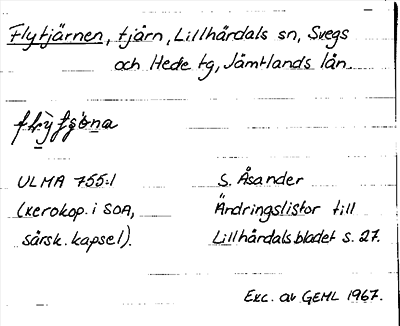 Flytjärnen, tjärn, Lillhärdals sn, Svegs
och Hede tg, Jämtlands län.
ULMA 755:1
(xerokop. i SOA,
särsk. kapsel).
S. Åsander
Ändringslistor till
Lillhärdalsbladet s. 27.
Exc. av GEHL 1967.